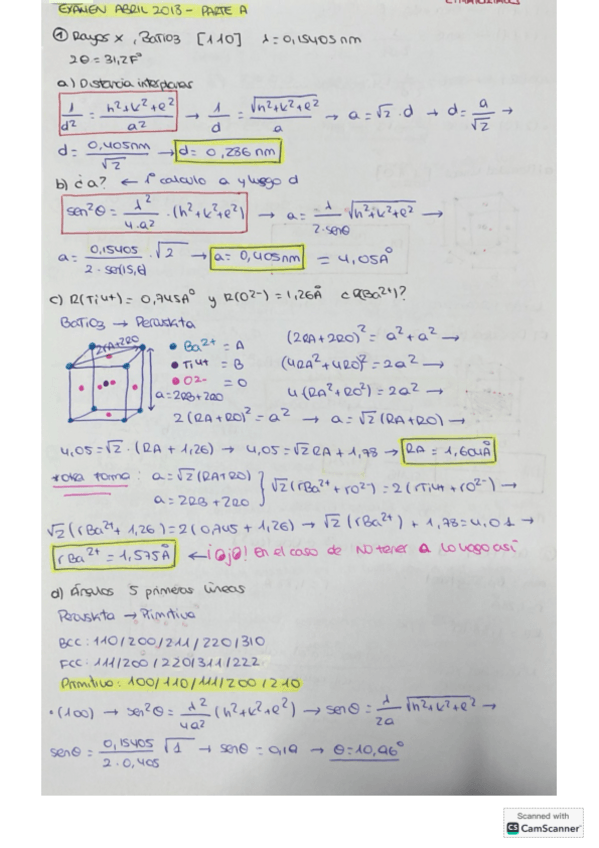 EXAMEN ABRIL 2018 - PARTE A
① Rayos X, BaTiO3 [110] λ = 0,15405 nm
2θ = 31,2Fº
a) Distancia interplanar
1/d² = h²+k²+l²/a² → 1/d = √h²+k²+l²/a → a = √2 · d → d = a/√2 →
d = 0,405nm/√2 → d = 0,286 nm
b) ¿a? ← 1º calculo a y luego d
sen²θ = λ²/4·a² · (h²+k²+l²) → a = λ/2·senθ √h²+k²+l² →
a = 0,15405/2·sen(15,6) · √2 → a = 0,405nm = 4,05Aº
c) R(Ti4+) = 0,745Aº y R(O2-) = 1,26Å ¿R(Ba2+)?
BaTiO3 → Perouskita
2RA+2RO
• Ba2+ = A
• Ti4+ = B
• O2- = O
a = 2RB+2RO
(2RA+2RO)² = a²+a² →
(4RA²+4RO)² = 2a² →
4(RA²+RO²) = 2a² →
2(RA+RO)² = a² → a = √2(RA+RO) →
4,05 = √2 · (RA + 1,26) → 4,05 = √2 RA + 1,78 → RA = 1,604Å
*otra forma: a = √2(RA+RO)
a = 2RB + 2RO } √2(rBa2+ + rO2-) = 2(rTi4+ + rO2-) →
√2(rBa2+ + 1,26) = 2(0,745 + 1,26) → √2(rBa2+) + 1,78 = 4,01 →
rBa2+ = 1,575Å ← ¡Ojo! En el caso de NO tener a lo hago así
d) Ángulos 5 primeras líneas
Perouskita → Primitiva
BCC: 110/200/211/220/310
FCC: 111/200/220/311/222
Primitivo: 100/110/111/200/210
• (100) → sen²θ = λ²/4a² (h²+k²+l²) → senθ = λ/2a √h²+k²+l² →
senθ = 0,15405/2·0,405 √1 → senθ = 0,19 → θ = 10,96º
Scanned with
CS CamScanner